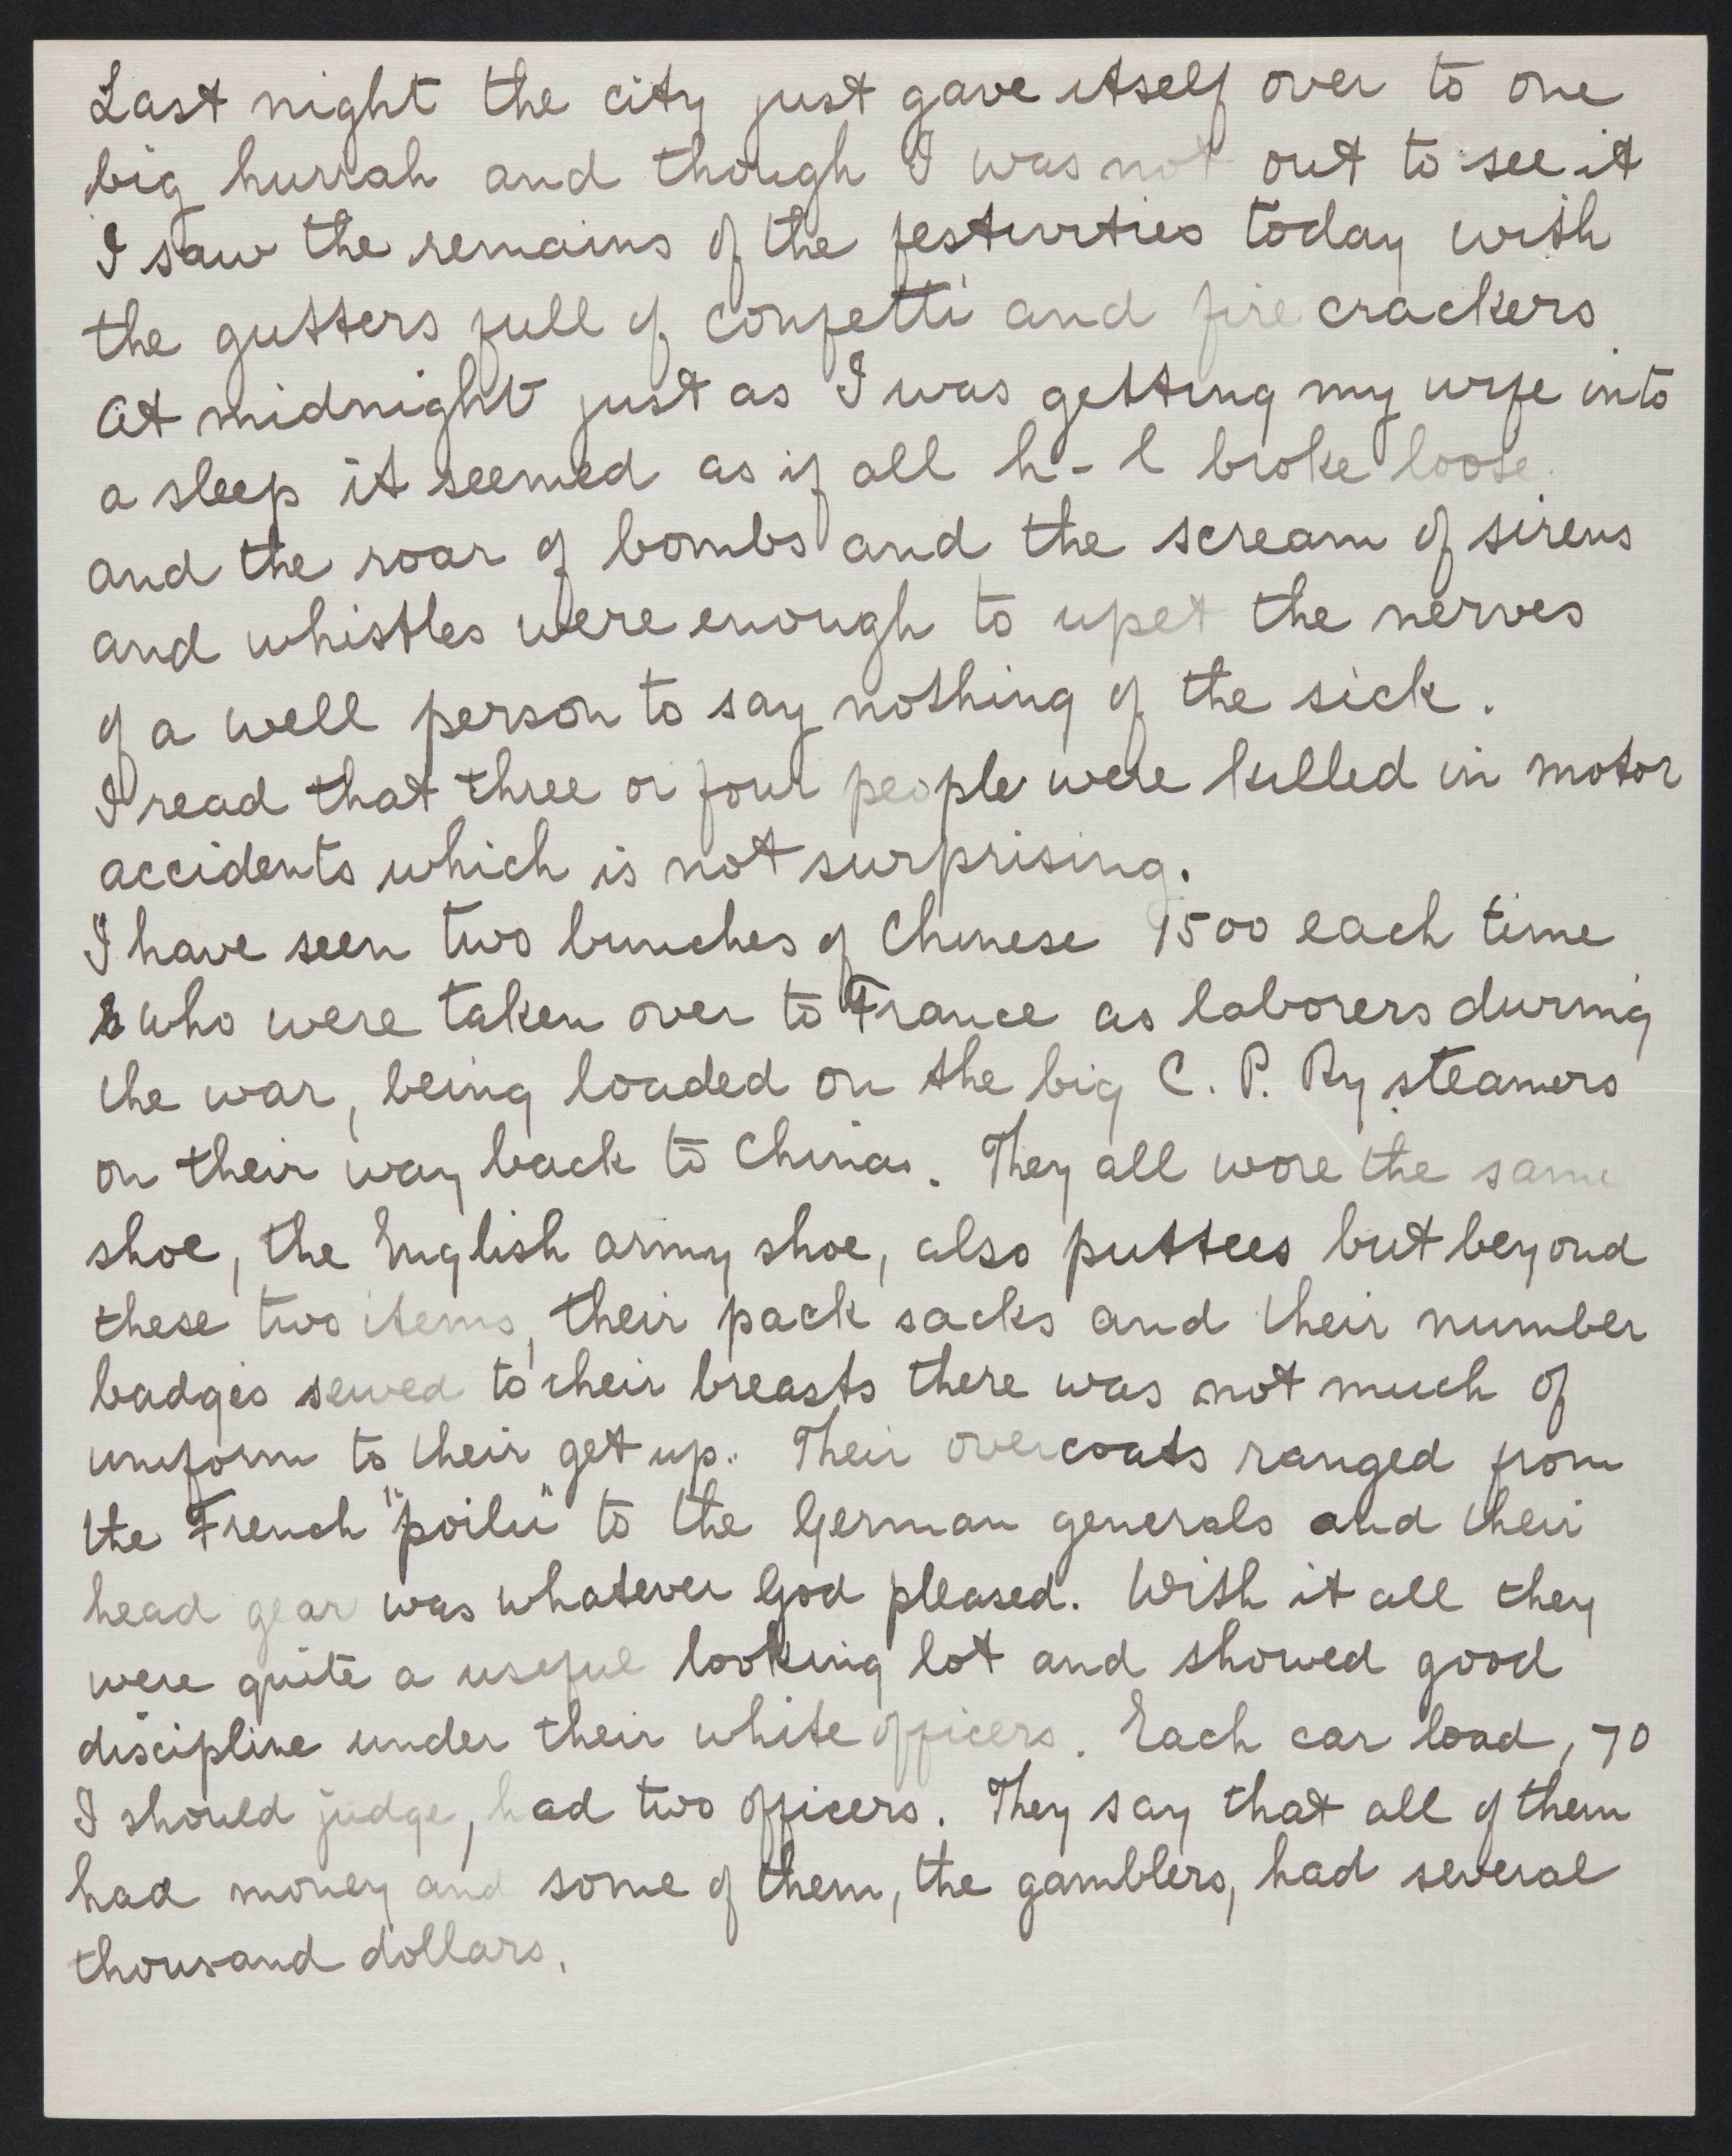 Last night the city just gave itself over to one
big hurrah and though I was not out to see it
I saw the remains of the festivities today with
the gutters full of confetti and fire crackers
At midnight just as I was getting my wife into
a sleep it seemed as if all h-l broke loose.
and the roar of bombs and the scream of sirens
and whistles were enough to upet the nerves
of a well person to say nothing of the sick.
I read that three or four people were killed in motor
accidents which is not surprising.
I have seen two bunches of Chinese 1500 each time
who were taken over to France as laborers during
the war, being loaded on the big C. P. Ry steamers
on their way back to China. They all wore the same
shoe, the English army shoe, also puttees but beyond
these two items, their pack sacks and their number
badges sewed to their breasts there was not much of
uniform to their get up. Their overcoats ranged from
the French "poilu" to the German generals and their
head gear was whatever God pleased. With it all they
were quite a useful looking lot and showed good
discipline under their white officers. Each car load, 70
I should judge, had two officers. They say that all of them
had money and some of them, the gamblers, had several
thousand dollars.